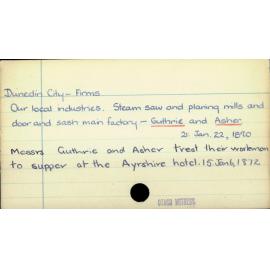 Dunedin City - Firms
Our local industries. Steam saw and planing mills and
door and sash man factory - Guthrie and Asher
21 Jan. 22, 1870
Messrs Guthrie and Asher treat their workmen
to supper at the Ayrshire hotel. 15 Jan 6, 1872
OTAGO WITNESS